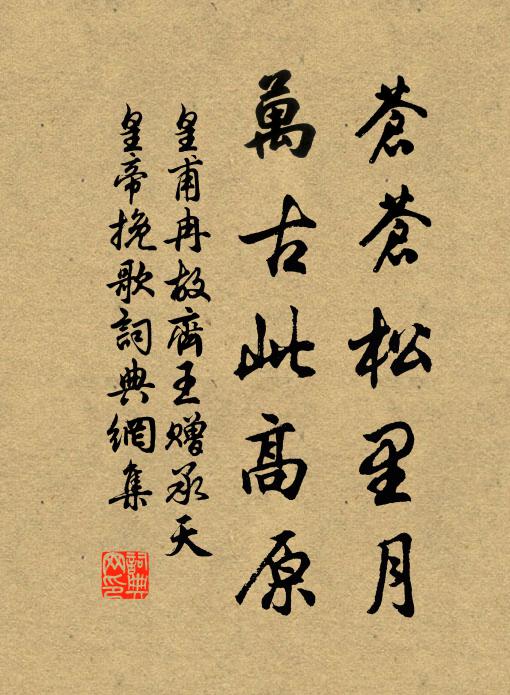 蒼蒼松里月
萬古此高原
皇甫冉故齊王贈承天
皇帝挽歌詞典網集
詞典網印